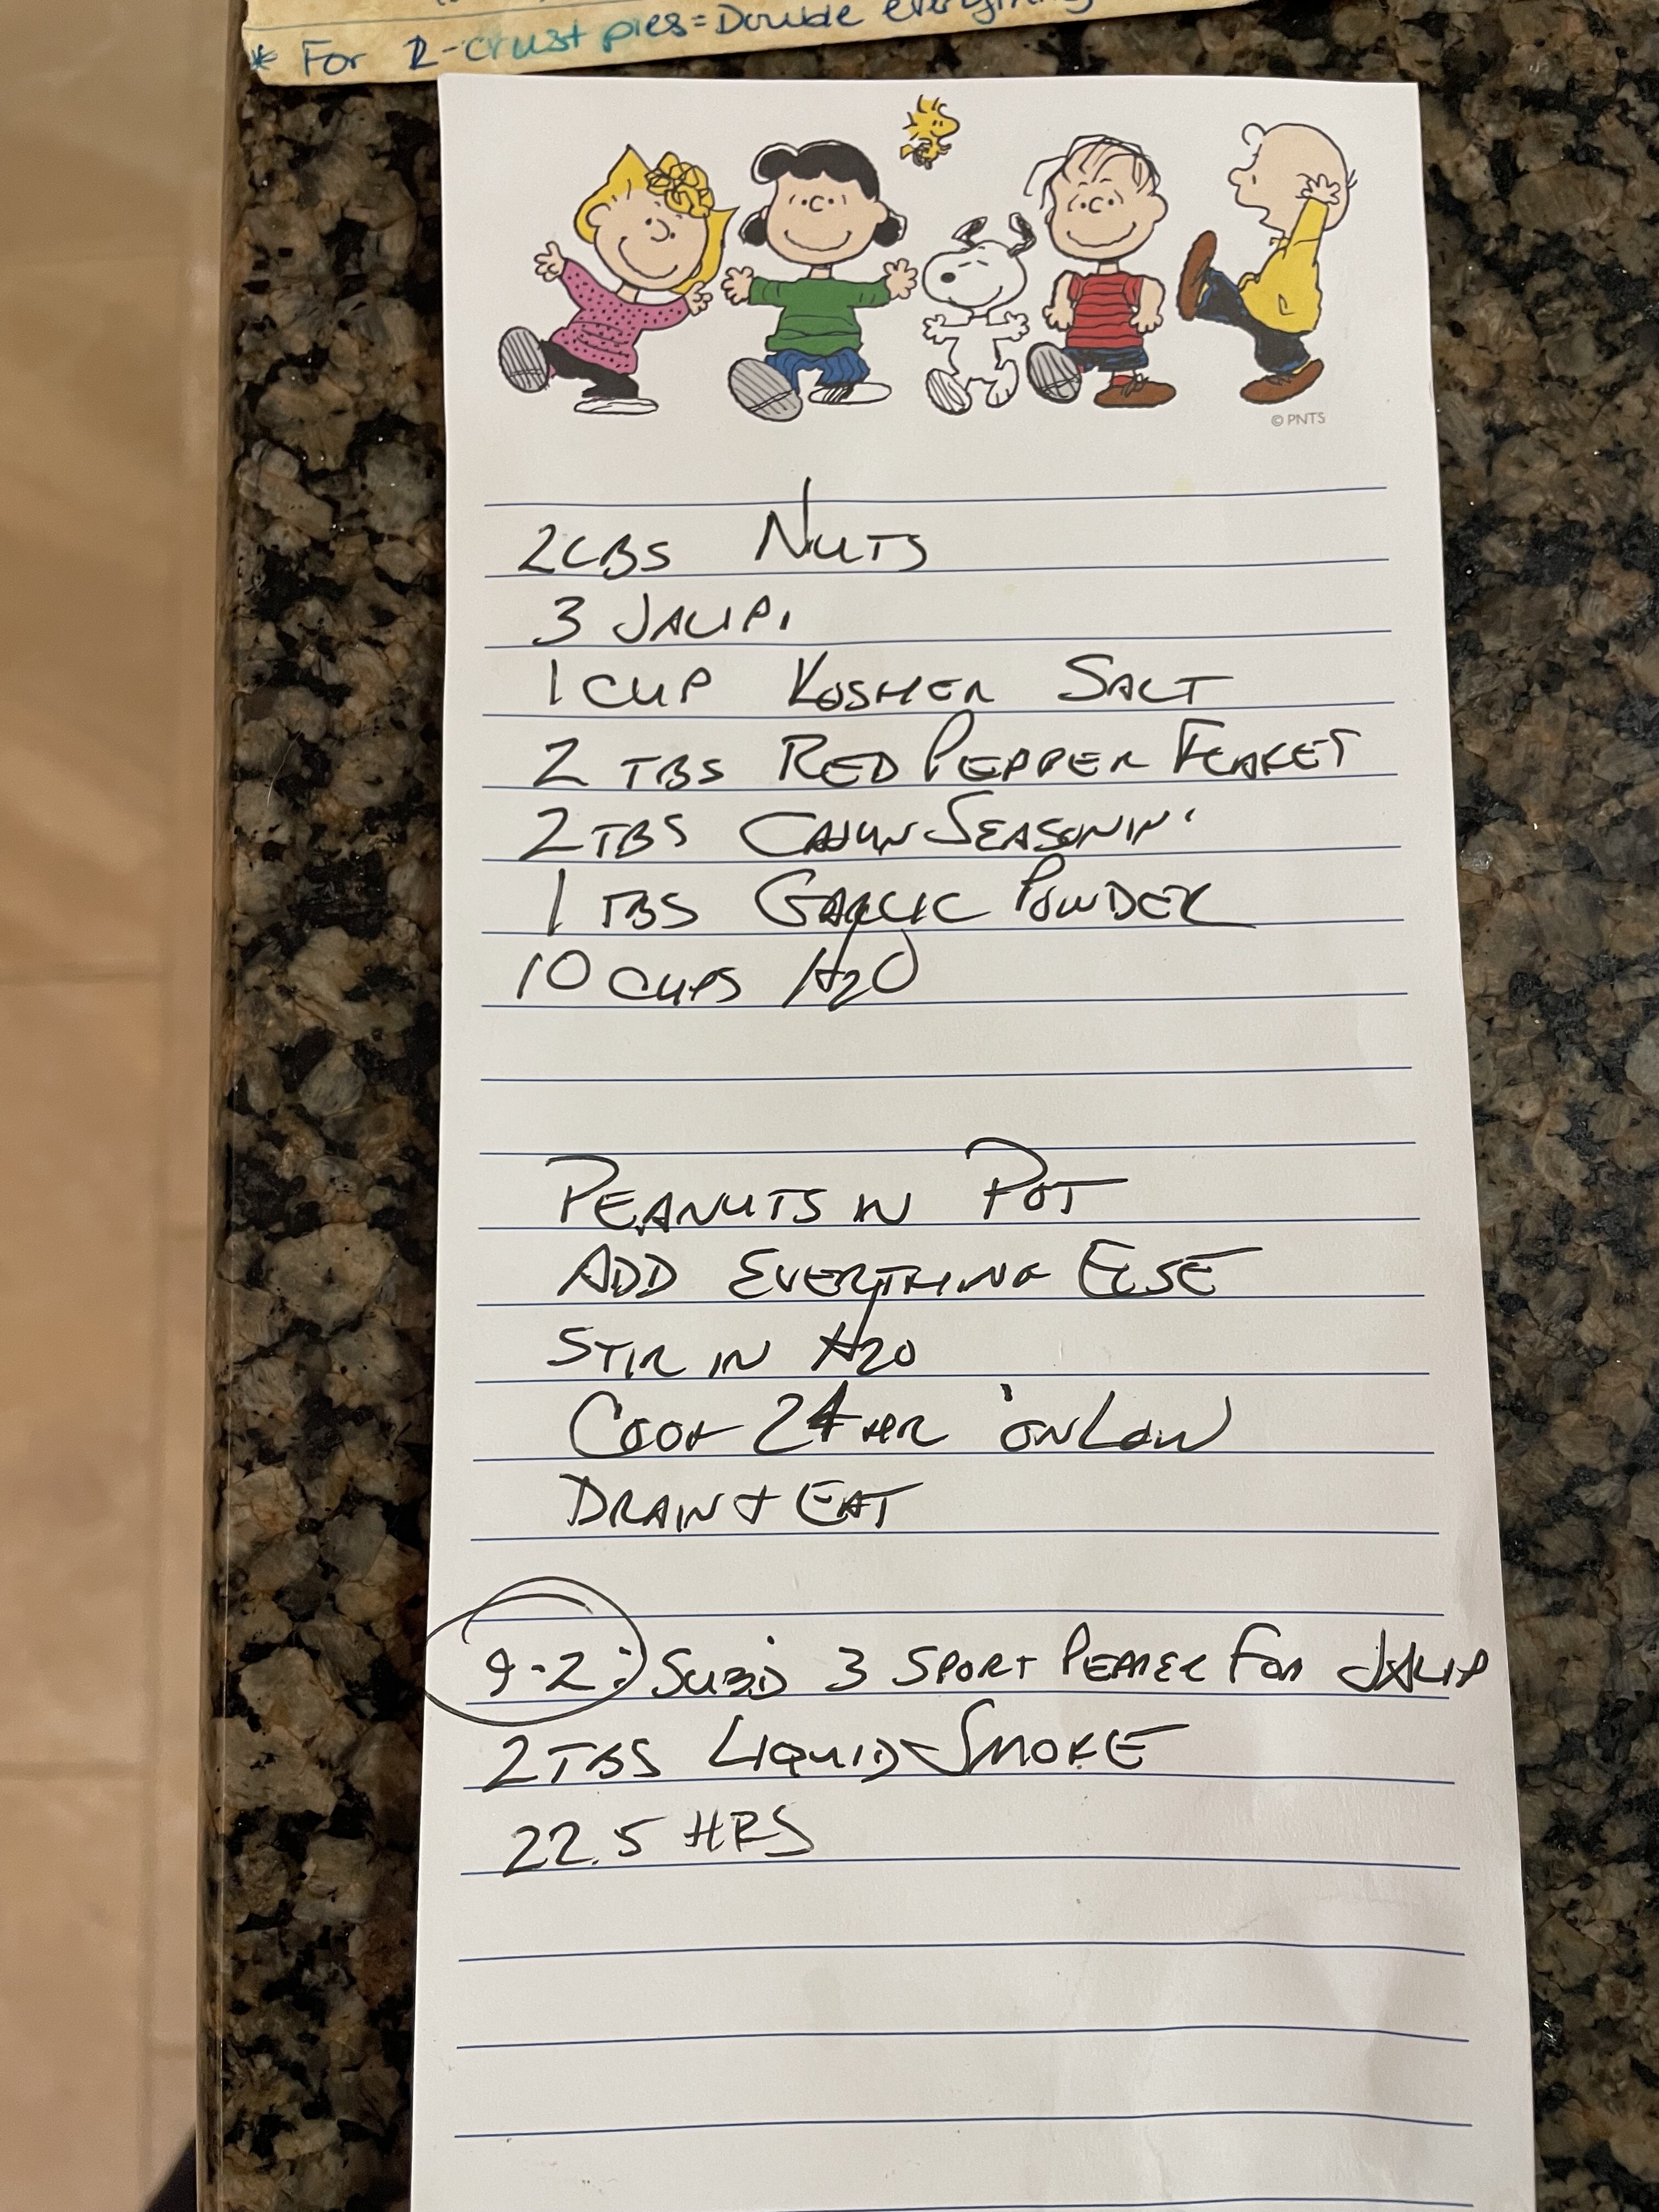 * For 2-crust pies = Double everything
© PNTS
2LBS NUTS
3 JALIP.
1 CUP KOSHER SALT
2 TBS RED PEPPER FLAKES
2 TBS CAJUN SEASONIN'
1 TBS GARLIC POWDER
10 CUPS H2O
PEANUTS IN POT
ADD EVERYTHING ELSE
STIR IN H2O
COOK 24 HR ON LOW
DRAIN + EAT
9-2: SUB'D 3 SPORT PEPPER FOR JALIP
2 TBS LIQUID SMOKE
22.5 HRS